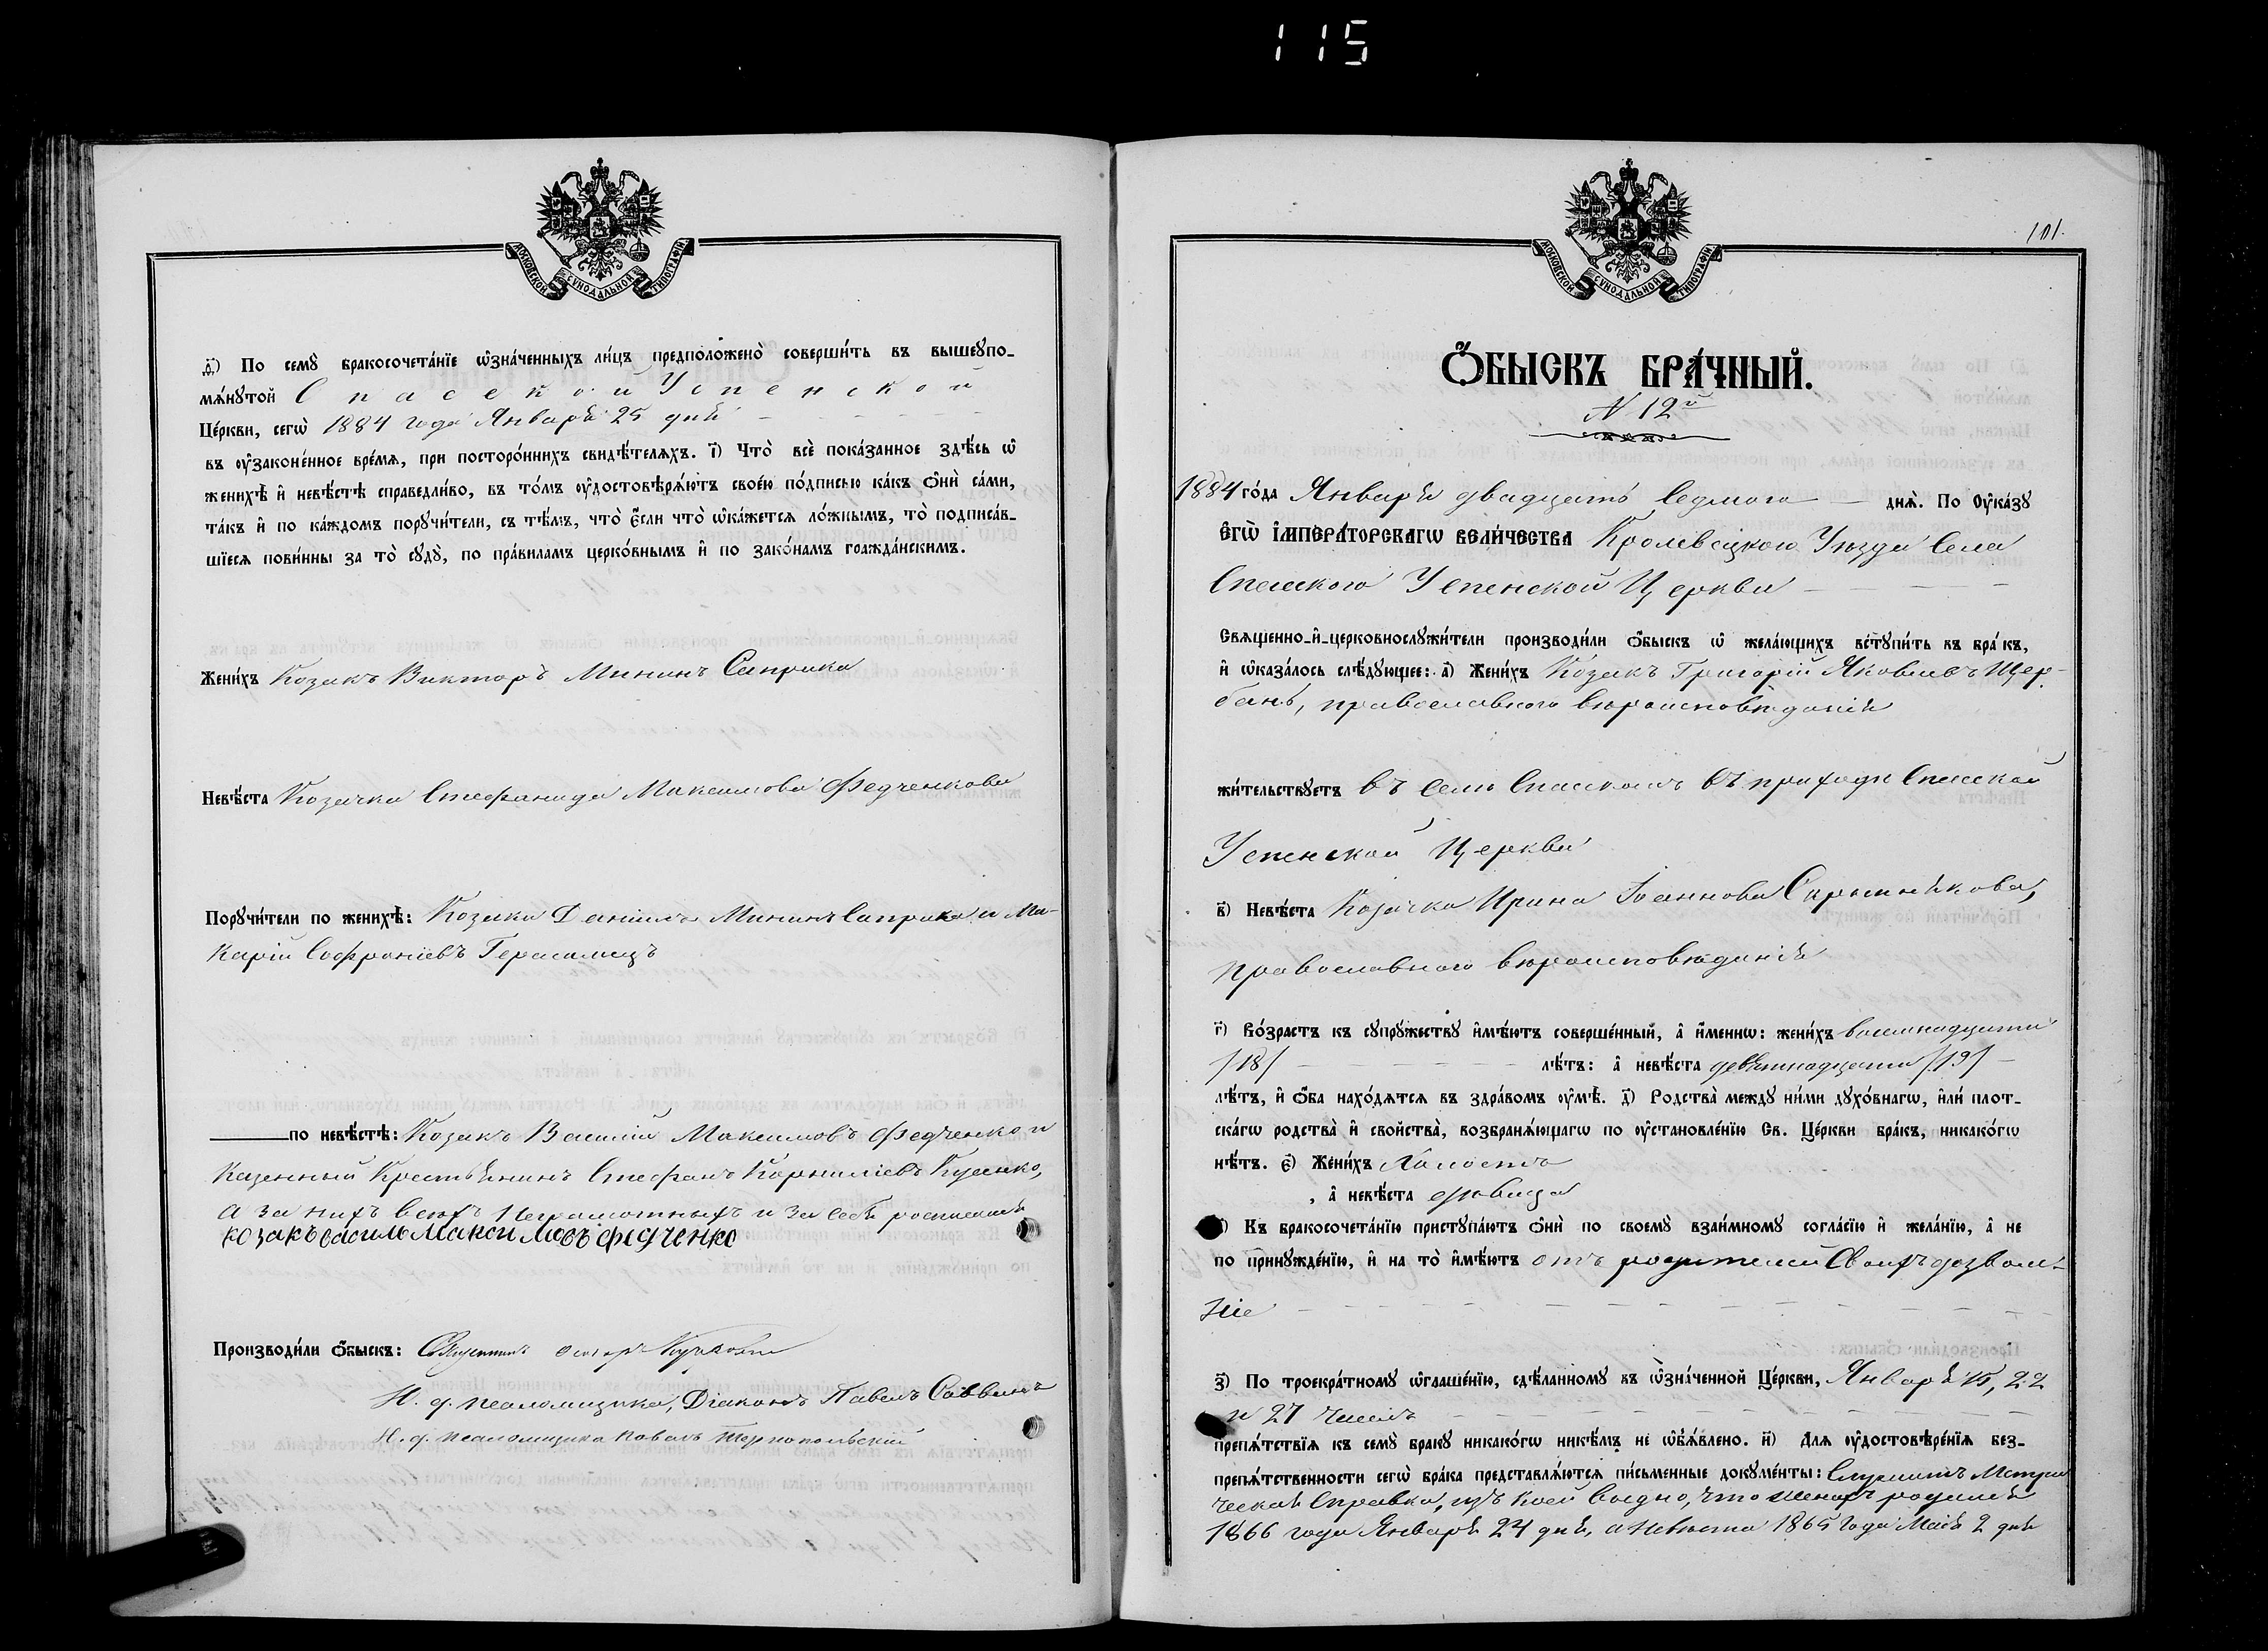 115
МОСКОВСКОЙ СѴНОДАЛЬНОЙ ТИПОГРАФІИ
ѳ҃) По семꙋ̀ бракосочета́нїе ѡ҆зна́ченныхъ ли́цъ предположено̀ соверши́ть въ вышеꙋпо-
мѧ́нꙋтой Спаской Успенской
Це́ркви, сегѡ̀ 1884 года Января 25 дня
въ ᲂу҆законе́нное вре́мѧ, при посторо́ннихъ свидѣ́телѧхъ. і҃) Что̀ всѐ пока́занное здѣ́сь ѡ҆
женихѣ̀ и҆ невѣ́стѣ справедли́во, въ то́мъ ᲂу҆достовѣрѧ́ютъ свое́ю по́дписью ка́къ ѻ҆нѝ са́ми,
та́къ и҆ по ка́ждомъ порꙋчи́тели, съ тѣ́мъ, что̀ є҆́сли что̀ ѡ҆ка́жетсѧ ло́жнымъ, то̀ подписа́в-
шїесѧ пови́нны за то̀ сꙋдꙋ̀, по пра́виламъ церко́внымъ и҆ по зако́намъ гражда́нскимъ.
Жени́хъ Козакъ Викторъ Мининъ Саприка
Невѣ́ста Козачка Стефанида Максимова Федченкова
Порꙋчи́тели по женихѣ̀: Козаки Даніилъ Мининъ Саприка и Ма-
карій Софроніевъ Герасимецъ
по невѣ́стѣ: Козакъ Василій Максимовъ Федченко и
Казенный Крестьянинъ Стефанъ Корниліевъ Куценко,
а за нихъ всѣхъ неграмотныхъ и за себя росписался
козакъ василь Максимовъ федченко
Производи́ли ѻ҆́быскъ: Священникъ
И. д. псаломщика, Діаконъ Павелъ Саввинъ
И. д. псаломщика Тернопольскій
МОСКОВСКОЙ СѴНОДАЛЬНОЙ ТИПОГРАФІИ
101.
Ѻ҆́БЫСКЪ БРА́ЧНЫЙ.
N 12й
1884 го́да Января двадцать седмого днѧ̀. По Оу҆ка́зꙋ
Є҆ГѠ̀ І҆МПЕРА́ТОРСКАГѠ ВЕЛИ́ЧЕСТВА Кролевецкого Уѣзда Села
Спаского Успенской Церкви
Свѧще́нно-и҆-церковнослꙋжи́тели производи́ли ѻ҆́быскъ ѡ҆ жела́ющихъ встꙋпи́ть въ бра́къ,
и҆ ѡ҆каза́лось слѣ́дꙋющее: а҃) Жени́хъ Козакъ Григорій Яковлевъ Щер-
бань, православного вѣроисповѣданія
жи́тельствꙋетъ въ селѣ Спаскомъ въ приходѣ Спаской
Успенской Церкви
в҃) Невѣ́ста Козачка Ирина Іоаннова Скрыникова,
православного вѣроисповѣданія
г҃) Во́зрастъ къ сꙋпрꙋ́жествꙋ и҆мѣ́ютъ соверше́нный, а҆ и҆́меннѡ: жени́хъ восемнадцати
/18/ лѣ́тъ: а҆ невѣ́ста девятнадцати /19/
лѣ́тъ, и҆ ѻ҆́ба нахо́дѧтсѧ въ здра́вомъ ᲂу҆мѣ̀. д҃) Родства̀ междꙋ ни́ми дꙋхо́внагѡ, и҆лѝ плот-
ска́гѡ родства̀ и҆ свойства̀, возбранѧ́ющагѡ по ᲂу҆становле́нїю Св. Це́ркви бра́къ, никако́гѡ
нѣ́тъ. є҃) Жени́хъ Холостъ
, а҆ невѣ́ста дѣвица
) Къ бракосочета́нїю пристꙋпа́ютъ ѻ҆нѝ по своемꙋ̀ взаи́мномꙋ согла́сїю и҆ жела́нїю, а҆ не
по принꙋжде́нїю, и҆ на то̀ и҆мѣ́ютъ отъ родителей своихъ дозволе-
ніе
з҃) По троекра́тномꙋ ѡ҆глаше́нїю, сдѣ́ланномꙋ въ ѡ҆зна́ченной Це́ркви, Января 15, 22
и 27 чиселъ
препѧ́тствїѧ къ семꙋ̀ бра́кꙋ никако́гѡ никѣ́мъ не ѡ҆б̾ѧ́влено. и҃) Длѧ ᲂу҆достовѣре́нїѧ без-
препѧ́тственности сегѡ̀ бра́ка представлѧ́ютсѧ пи́сьменные докꙋме́нты: Служитъ Метри-
ческая Справка, изъ коей видно, что женихъ родился
1866 года Января 24 дня, а невѣста 1865 года Мая 2 дня